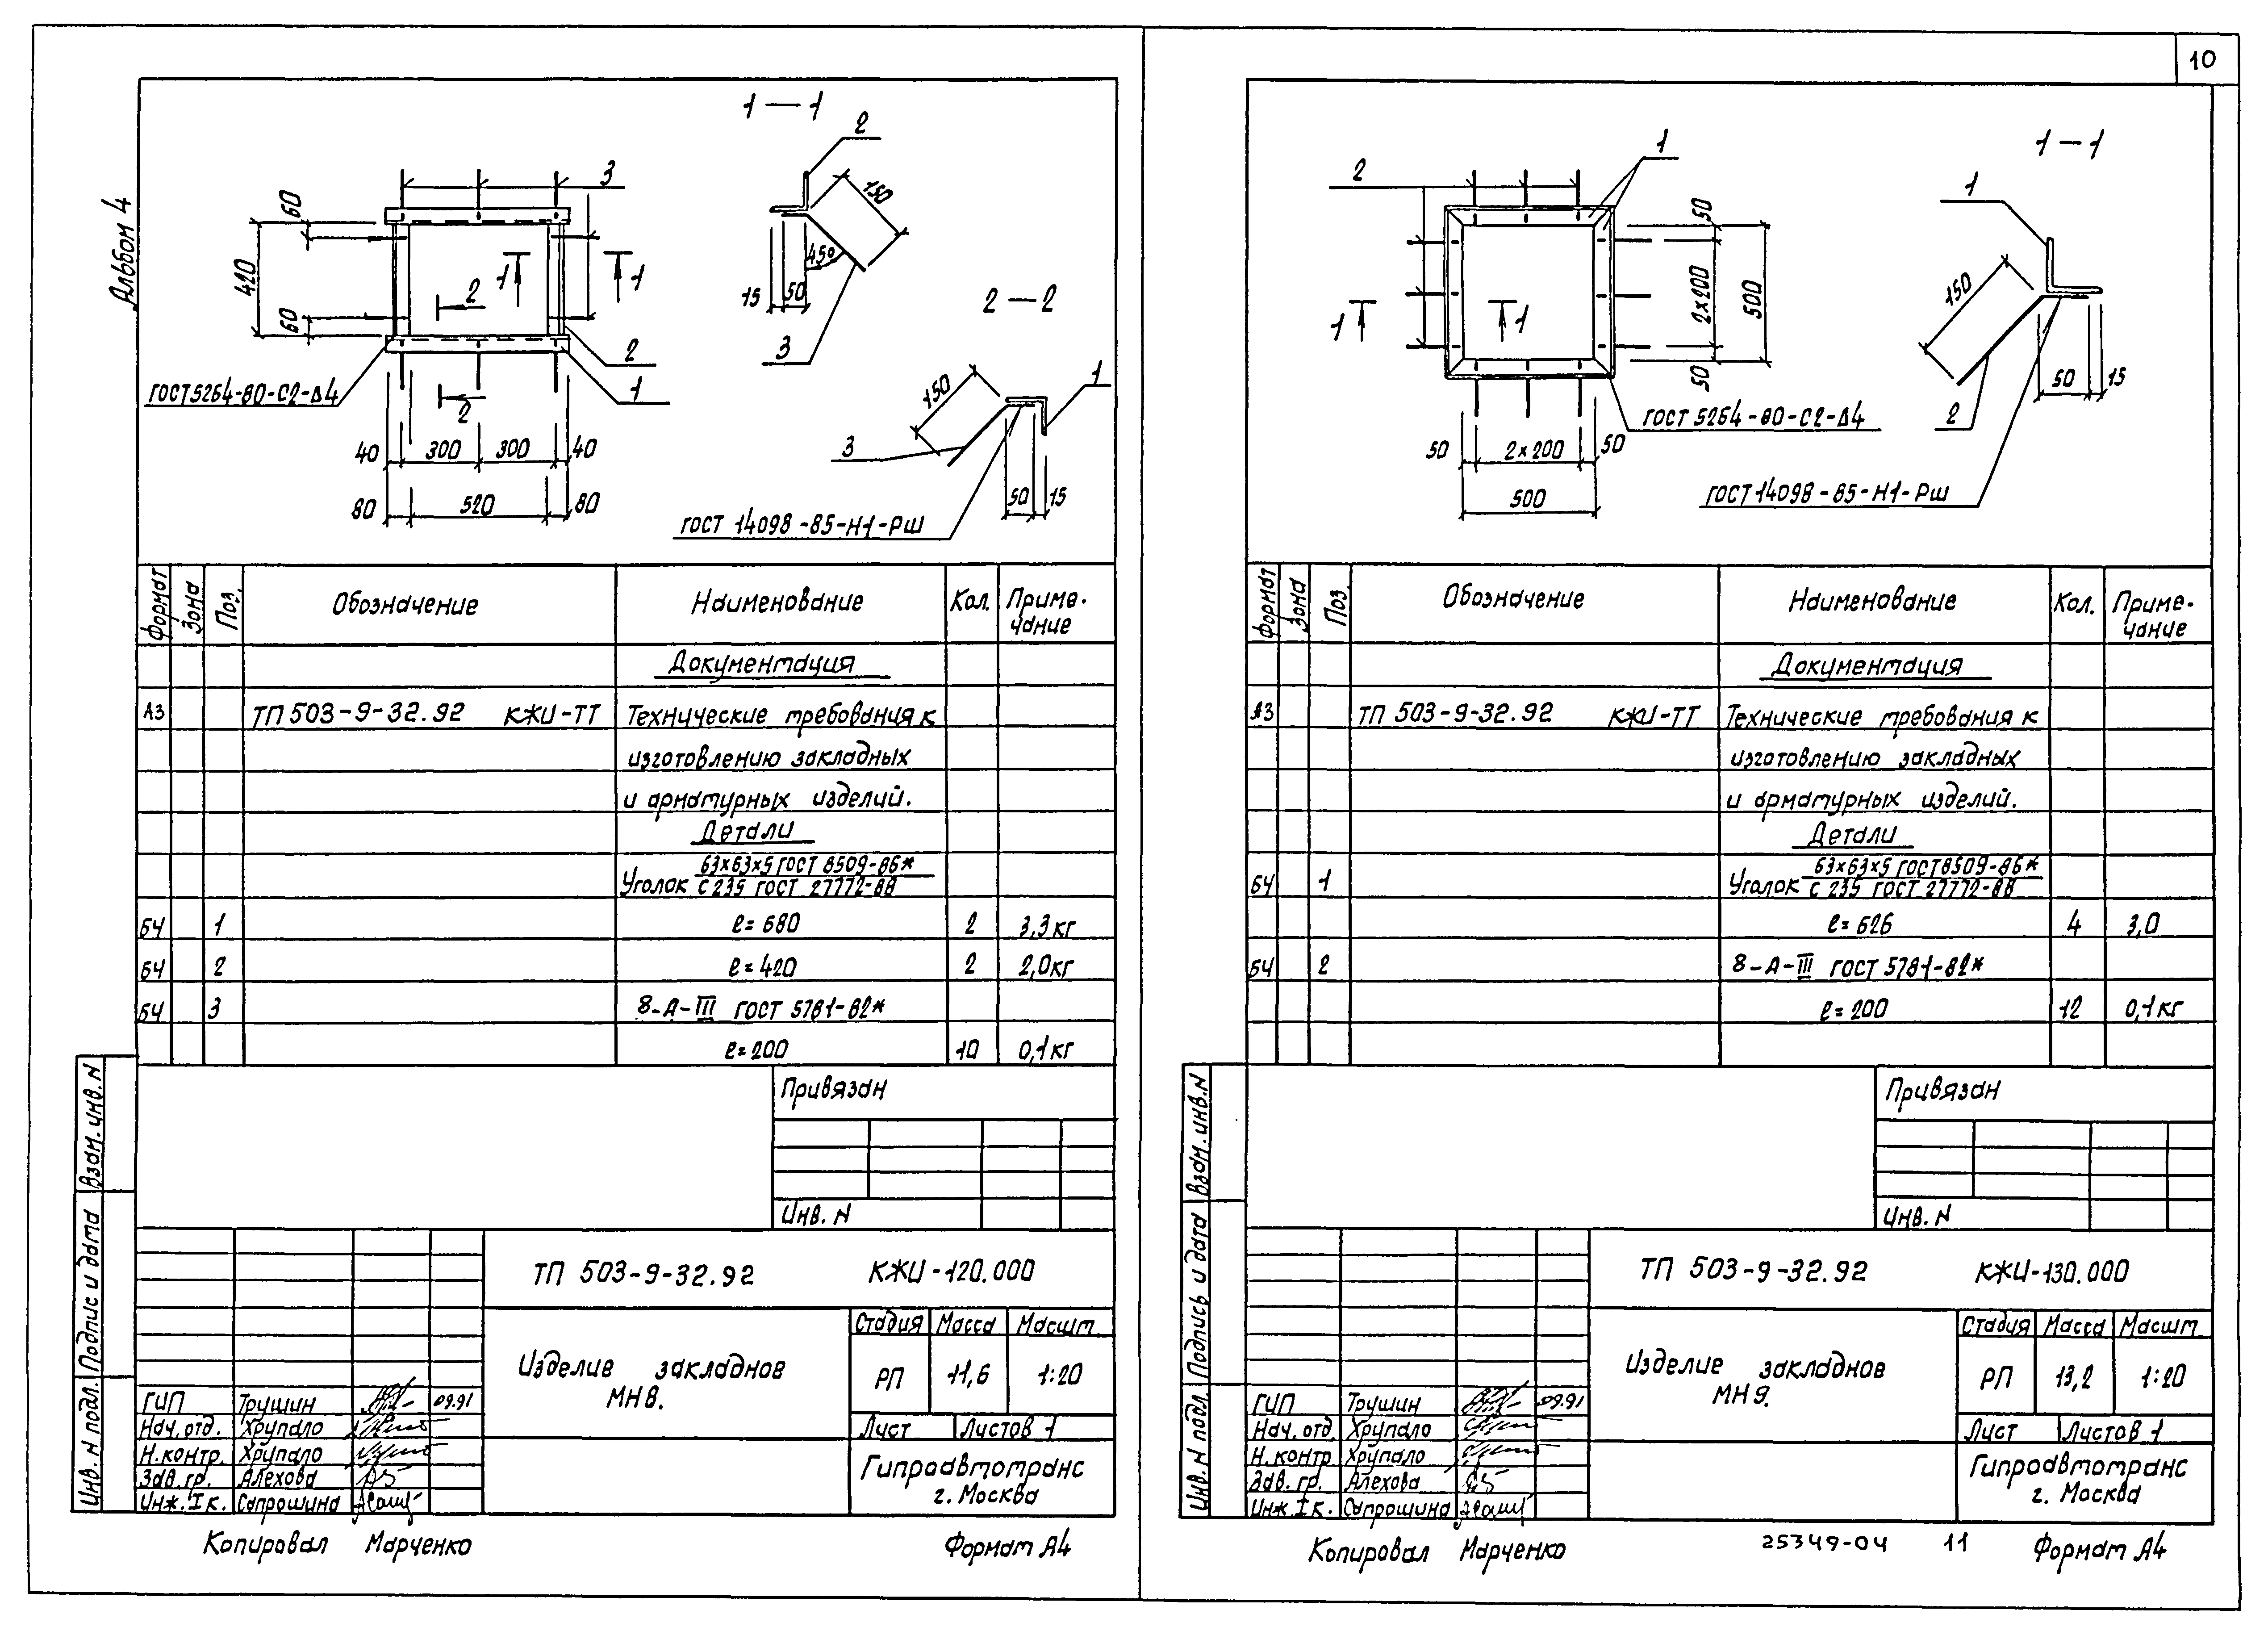 10
Альбом 4
1—1
2
3
60
150
420
45°
1 1
2
15 50
2—2
60
3
2
1
1
ГОСТ 5264-80-С2-Δ4
2
150
3
40 300 300 40
80 520 80
50 15
ГОСТ 14098-85-Н1-РШ
Формат Зона Поз. Обозначение Наименование Кол. Приме-
чание
Документация
А3 ТП 503-9-32.92 КЖИ-ТТ Технические требования к
изготовлению закладных
и арматурных изделий.
Детали
63х63х5 ГОСТ 8509-86*
Уголок С 235 ГОСТ 27772-88
БЧ 1 ℓ=680 2 3,3кг
БЧ 2 ℓ=420 2 2,0кг
БЧ 3 8-А-III ГОСТ 5781-82*
ℓ=200 10 0,1кг
Привязан
Инв. N
Взам. инв. N
Подпись и дата
Инв. N подл.
ТП 503-9-32.92 КЖИ-120.000
Изделие закладное
МН8.
Стадия Масса Масшт.
РП 11,6 1:20
Лист Листов 1
Гипроавтотранс
г. Москва
ГИП Трушин 09.91
Нач. отд. Хрупало
Н. контр. Хрупало
Зав. гр. Алехова
Инж. I к. Сапрошина
Копировал Марченко Формат А4
1—1
1
2
1
50
2×200
500
150
1 1
50
50 15
ГОСТ 5264-80-С2-Δ4
2
50 2×200 50
500
ГОСТ 14098-85-Н1-РШ
Формат Зона Поз. Обозначение Наименование Кол. Приме-
чание
Документация
А3 ТП 503-9-32.92 КЖИ-ТТ Технические требования к
изготовлению закладных
и арматурных изделий.
Детали
63х63х5 ГОСТ 8509-86*
БЧ 1 Уголок С 235 ГОСТ 27772-88
ℓ=626 4 3,0
БЧ 2 8-А-III ГОСТ 5781-82*
ℓ=200 12 0,1кг
Привязан
Инв. N
Взам. инв. N
Подпись и дата
Инв. N подл.
ТП 503-9-32.92 КЖИ-130.000
Изделие закладное
МН9.
Стадия Масса Масшт.
РП 13,2 1:20
Лист Листов 1
Гипроавтотранс
г. Москва
ГИП Трушин 09.91
Нач. отд. Хрупало
Н. контр. Хрупало
Зав. гр. Алехова
Инж. I к. Сапрошина
Копировал Марченко 25349-04 11 Формат А4